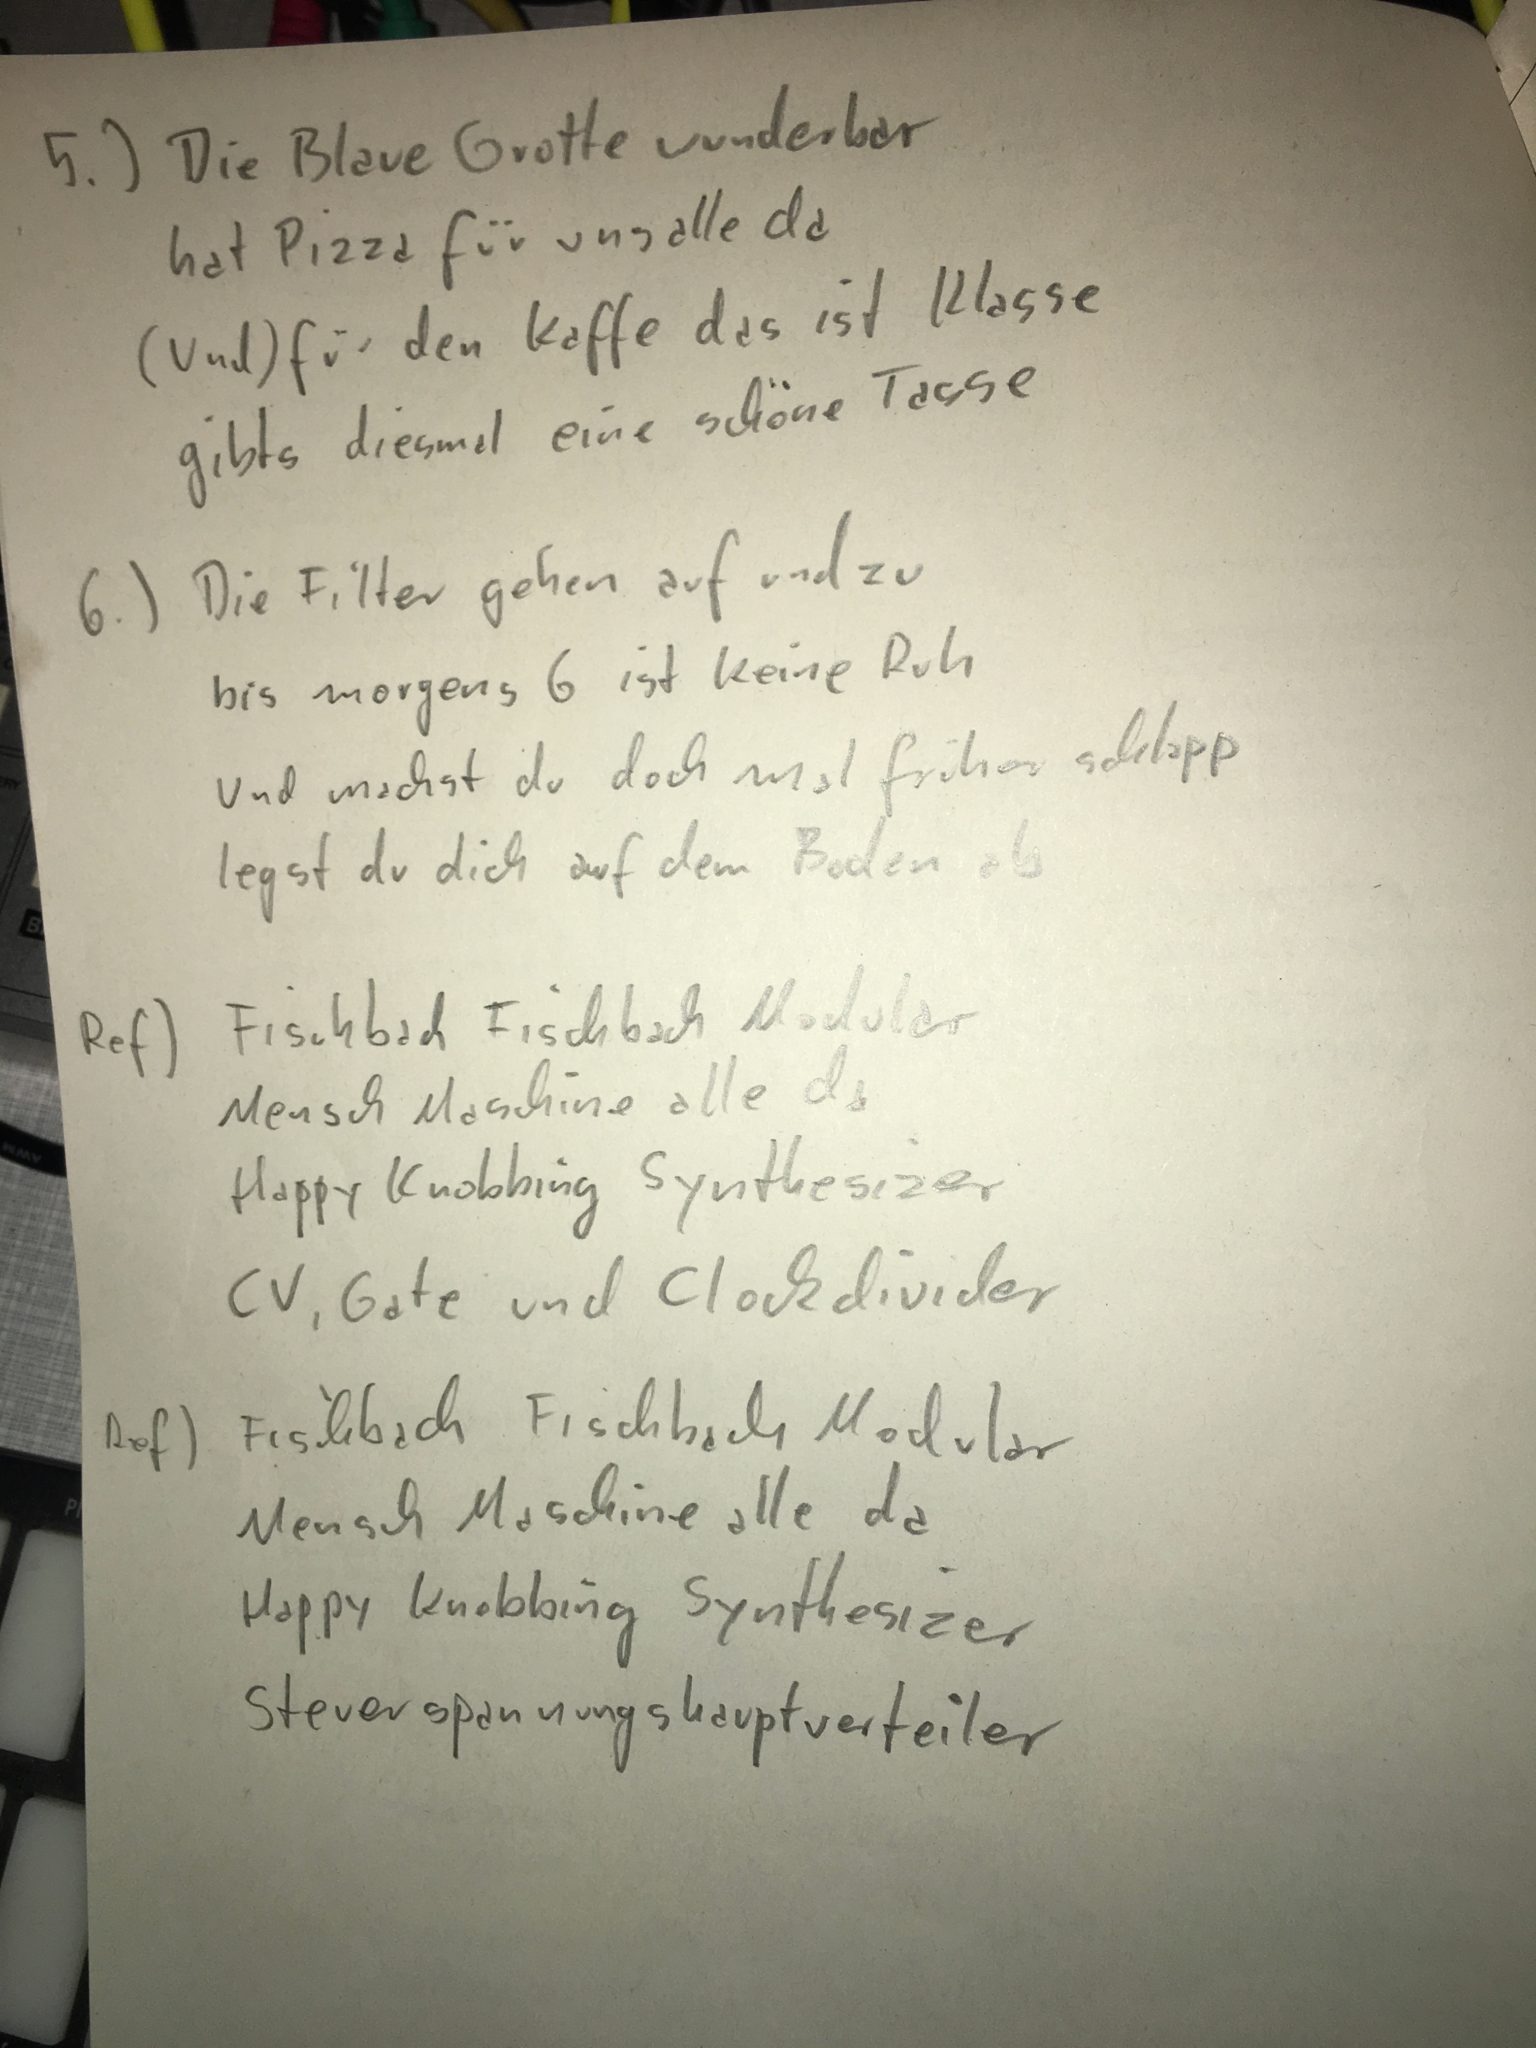 5.) Die Blaue Grotte wunderbar
hat Pizza für uns alle da
(Und) für den Kaffe das ist Klasse
gibts diesmal eine schöne Tasse
6.) Die Filter gehen auf und zu
bis morgens 6 ist keine Ruh
Und machst du doch mal früher schlapp
legst du dich auf dem Boden ab
Ref) Fischbach Fischbach Modular
Mensch Maschine alle da
Happy Knobbing Synthesizer
CV, Gate und Clockdivider
Ref) Fischbach Fischbach Modular
Mensch Maschine alle da
Happy Knobbing Synthesizer
Steuerspannungshauptverteiler